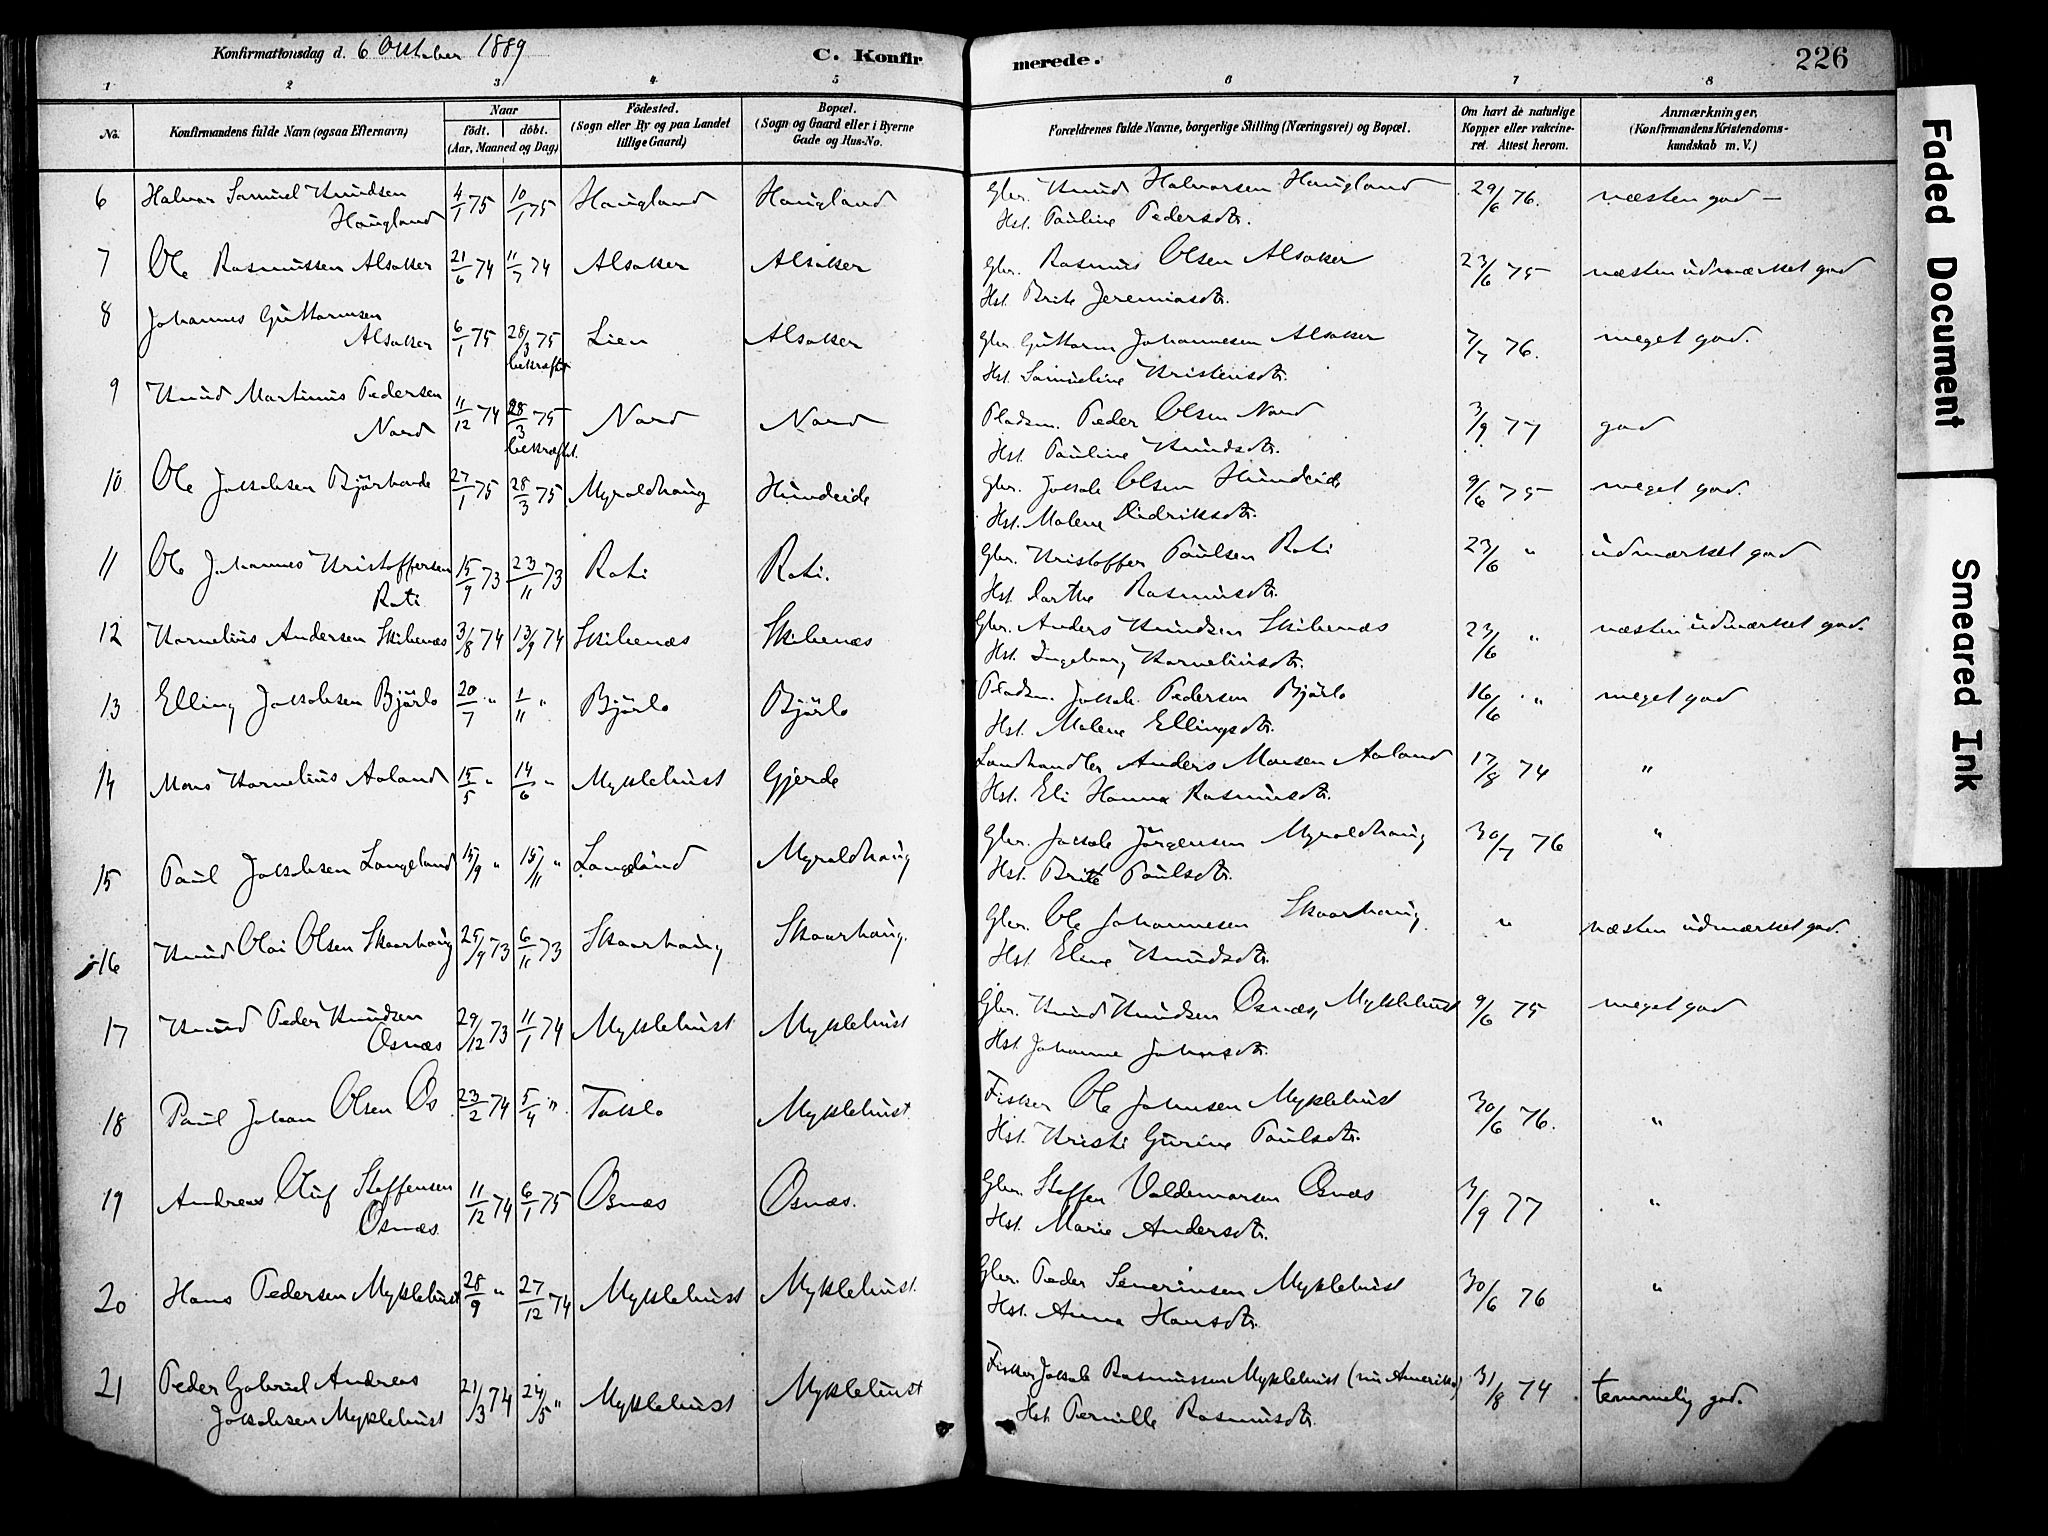 Konfirmationsdag d. 6 October 1889
C. Konfirmerede.
226
1 2 3 4 5 6 7 8
No.
Konfirmandens fulde Navn (ogsaa Efternavn)
Naar
födt. döbt.
(Aar, Maaned og Dag)
Födested.
(Sogn eller By og paa Landet
tillige Gaard)
Bopæl.
(Sogn og Gaard eller i Byerne
Gade og Hus-No.
Forældrenes fulde Navne, borgerlige Stilling (Næringsvei) og Bopæl.
Om havt de naturlige
Kopper eller vakcine-
ret. Attest herom.
Anmærkninger.
(Konfirmandens Kristendoms-
kundskab m. V.)
6 Halvor Samuel Knudsen 4/1 75 10/1 75 Haugland Haugland Gbr. Knud Halvorsen Haugland 29/6 76. næsten god –
Haugland Hst. Pauline Pedersdtr.
7 Ole Rasmussen Alsaker 21/6 74 11/7 74 Alsaker Alsaker Gbr. Rasmus Olsen Alsaker 23/6 75 næsten udmærket god
Hst. Brite Jeremiasdtr.
8 Johannes Guttormsen
Alsaker 6/1 75 28/3 75 Lien Alsaker Gbr. Guttorm Johannesen Alsaker 7/7 76. meget god.
bekræftet Hst. Samueline Kristensdtr.
9 Knud Martinus Pedersen 11/12 74 28/3 75 Nord Nord Pladsm. Peder Olsen Nord 3/9 77 god
Nord bekræftet. Hst. Pauline Knudsdtr.
10 Ole Jakobsen Björhovde 27/1 75 28/3 75 Myroldhaug Hundeide Gbr. Jakob Olsen Hundeide 9/6 75 meget god.
Hst. Malene Didriksdtr.
11 Ole Johannes Kristoffersen 15/9 73 23/11 73 Roti Roti. Gbr. Kristoffer Paulsen Roti 23/6 " udmærket god
Roti Hst. Dorthe Rasmusdtr.
12 Kornelius Andersen Skibenæs 3/8 74 13/9 74 Skibenæs Skibenæs Gbr. Anders Knudsen Skibenæs 23/6 " næsten udmærket god.
Hst. Ingeborg Korneliusdtr.
13 Elling Jakobsen Björlo 20/7 " 1/11 " Björlo Björlo Pladsm. Jakob Pedersen Björlo 16/6 " meget god
Hst. Malene Ellingsdtr.
14 Mons Kornelius Aaland 15/5 " 14/6 " Myklebust Gjerde Landhandler Anders Monsen Aaland 17/8 74 "
Hst. Eli Hanna Rasmusdtr.
15 Paul Jakobsen Langeland 15/9 " 15/11 " Langeland Myroldhaug Gbr. Jakob Jörgensen Myroldhaug 30/7 76 "
Hst. Brite Paulsdtr.
16 Knud Olai Olsen Skaarhaug 25/9 73 6/11 73 Skaarhaug Skaarhaug. Gbr. Ole Johannesen Skaarhaug " næsten udmærket god.
Hst. Eline Knudsdtr.
17 Knud Peder Knudsen 29/12 73 11/1 74 Myklebust Myklebust Gbr. Knud Knudsen Osnæs, Myklebust 9/6 75 meget god
Osnæs Hst. Johanne Johnsdtr.
18 Paul Johan Olsen Os 23/2 74 5/4 " Taklo Myklebust Fisker Ole Johnsen Myklebust 30/6 76. "
Hst. Kristi Gurine Paulsdtr.
19 Andreas Oluf Steffensen 11/12 74 6/1 75 Osnæs Osnæs. Gbr. Steffen Valdemarsen Osnæs 3/9 77 "
Osnæs Hst. Marie Andersdtr.
20 Hans Pedersen Myklebust 28/9 " 27/12 74 Myklebust Myklebust Gbr. Peder Severinsen Myklebust 30/6 76 "
Hst. Anna Hansdtr.
21 Peder Gabriel Andreas 21/3 74 24/5 " Myklebust Myklebust Fisker Jakob Rasmussen Myklebust (nu Amerika) 31/8 74 temmelig god.
Jakobsen Myklebust Hst. Pernille Rasmusdtr.
Faded Document
Smeared Ink